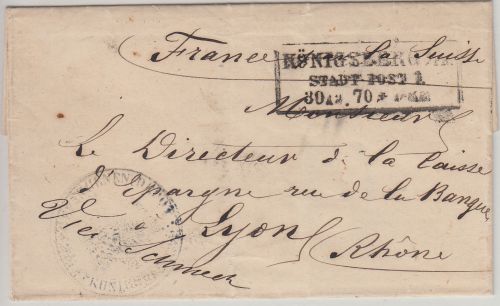 France
La Suisse
KÖNIGSBERG
STADT-POST 1.
30 12. 70
Monsieur
Le Directeur d la Caisse
d'Epargne rue de la Banque
à
Lyon
Rhône
Via